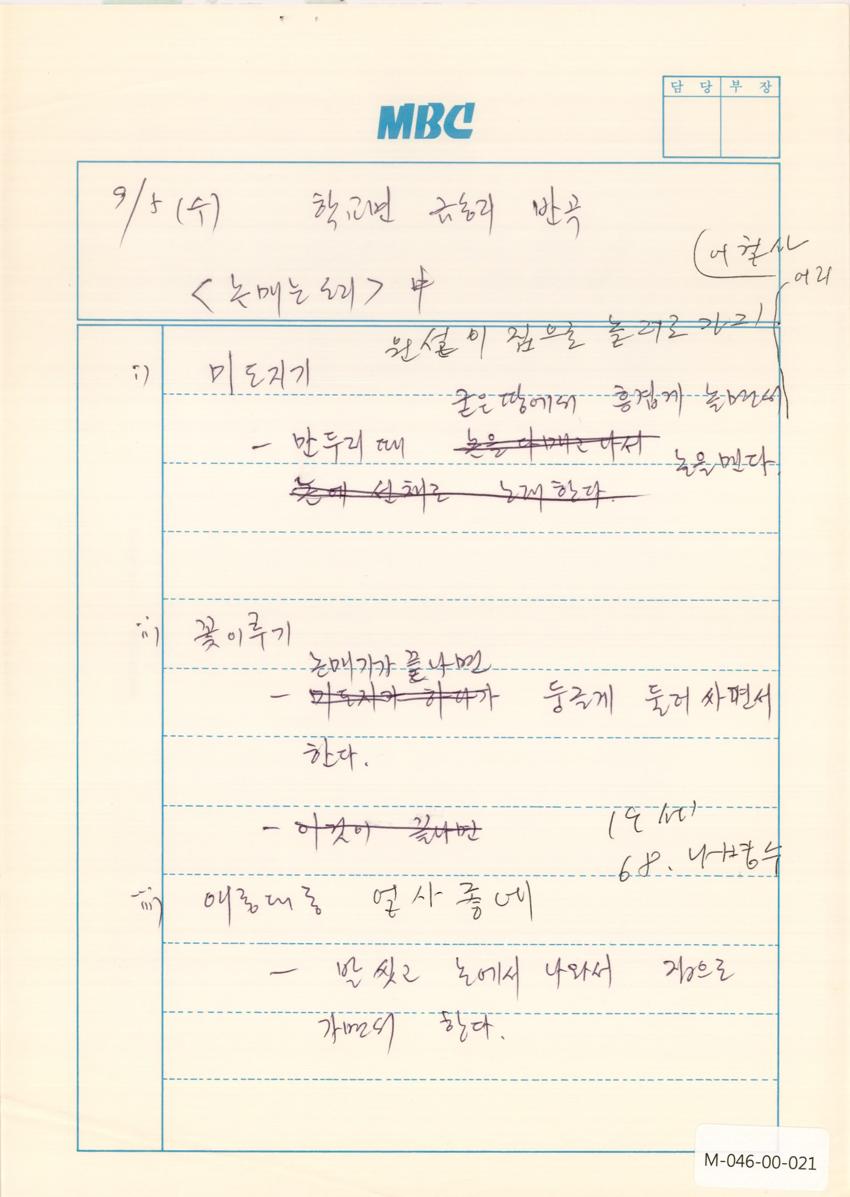 담 당 부 장
MBC
9/5 (수) 학교면 금송리 반곡
(어 철사
< 논매는 소리 > 中
어리
완설이 집으로 놀러로 가리
i) 미도지기
굳은 땅에서 흥겹게 놀면서
- 만두리 때 논을 다 매고 나서 논을 맨다.
논에 선채로 노래한다.
ii) 꽃이루기
논매기가 끝나면
- 미도지기 하다가 둥글게 둘러 싸면서
한다.
- 이것이 끝나면
19세
68. 나
iii) 에롱대롱 얼사 좋네
- 발 씻고 논에서 나와서 집으로
가면서 한다.
M-046-00-021